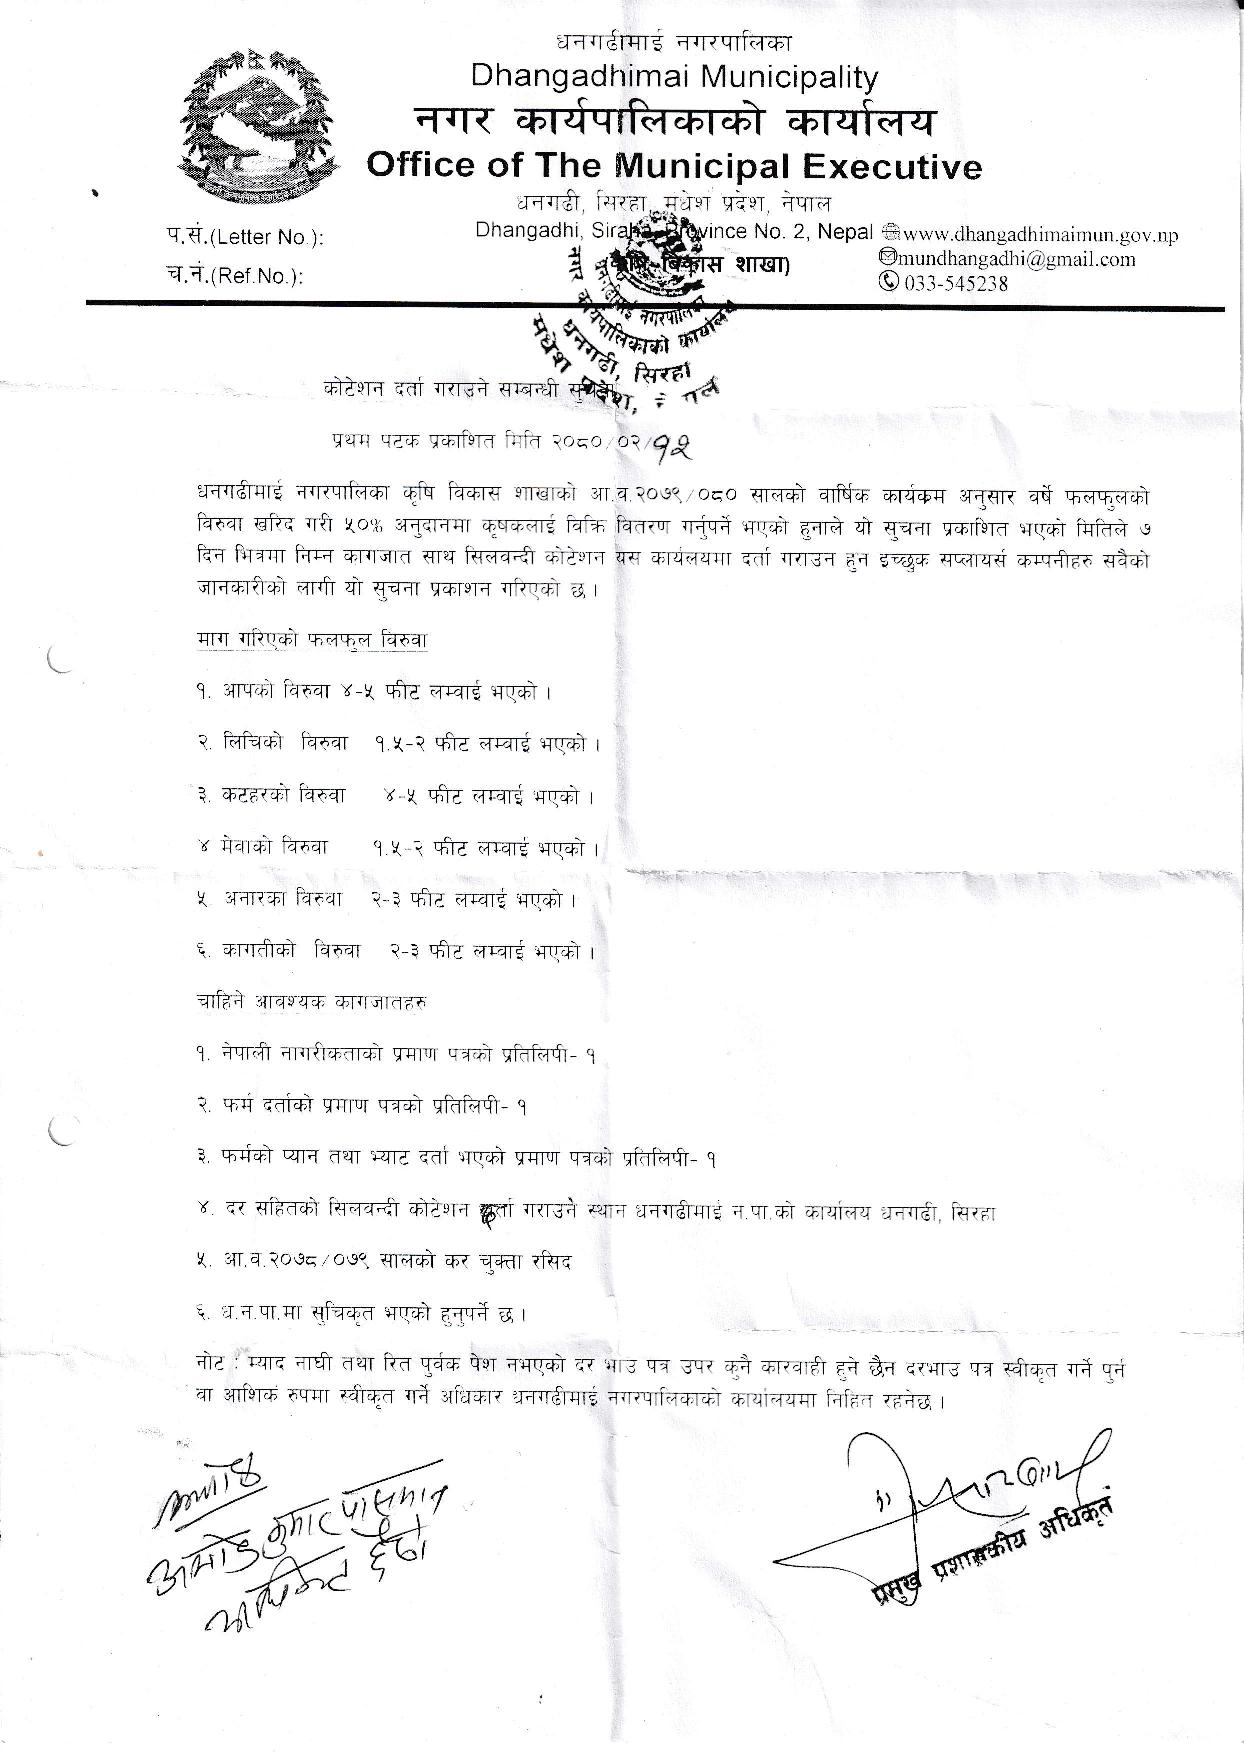 धनगढीमाई नगरपालिका
Dhangadhimai Municipality
नगर कार्यपालिकाको कार्यालय
Office of The Municipal Executive
धनगढी, सिरहा, मधेश प्रदेश, नेपाल
Dhangadhi, Siraha, Province No. 2, Nepal
www.dhangadhimaimun.gov.np
mundhangadhi@gmail.com
033-545238
प.सं.(Letter No.):
च.नं.(Ref.No.):
कृषि विकास शाखा)
धनगढीमाई नगरपालिका
नगर कार्यपालिकाको कार्यालय
धनगढी, सिरहा
मधेश प्रदेश,
कोटेशन दर्ता गराउने सम्बन्धी
प्रथम पटक प्रकाशित मिति २०८०/०२/१२
धनगढीमाई नगरपालिका कृषि विकास शाखाको आ.व.२०७९/०८० सालको वार्षिक कार्यक्रम अनुसार वर्षे फलफुलको
विरुवा खरिद गरी ५०% अनुदानमा कृषकलाई विक्रि वितरण गर्नुपर्ने भएको हुनाले यो सुचना प्रकाशित भएको मितिले ७
दिन भित्रमा निम्न कागजात साथ सिलवन्दी कोटेशन यस कार्यलयमा दर्ता गराउन हुन इच्छुक सप्लायर्स कम्पनीहरु सवैको
जानकारीको लागी यो सुचना प्रकाशन गरिएको छ ।
माग गरिएको फलफुल विरुवा
१. आपको विरुवा ४-५ फीट लम्वाई भएको ।
२. लिचिको विरुवा १.५-२ फीट लम्वाई भएको ।
३. कटहरको विरुवा ४-५ फीट लम्वाई भएको ।
४ मेवाको विरुवा १.५-२ फीट लम्वाई भएको ।
५. अनारका विरुवा २-३ फीट लम्वाई भएको ।
६. कागतीको विरुवा २-३ फीट लम्वाई भएको ।
चाहिने आवश्यक कागजातहरु
१. नेपाली नागरीकताको प्रमाण पत्रको प्रतिलिपी- १
२. फर्म दर्ताको प्रमाण पत्रको प्रतिलिपी- १
३. फर्मको प्यान तथा भ्याट दर्ता भएको प्रमाण पत्रको प्रतिलिपी- १
४. दर सहितको सिलवन्दी कोटेशन दर्ता गराउने स्थान धनगढीमाई न.पा.को कार्यालय धनगढी, सिरहा
५. आ.व.२०७८/०७९ सालको कर चुक्ता रसिद
६. ध.न.पा.मा सुचिकृत भएको हुनुपर्ने छ ।
नोट : म्याद नाघी तथा रित पुर्वक पेश नभएको दर भाउ पत्र उपर कुनै कारवाही हुने छैन दरभाउ पत्र स्वीकृत गर्ने पुर्न
वा आशिक रुपमा स्वीकृत गर्ने अधिकार धनगढीमाई नगरपालिकाको कार्यालयमा निहित रहनेछ ।
कुमार पासमान
प्रमुख प्रशासकीय अधिकृत